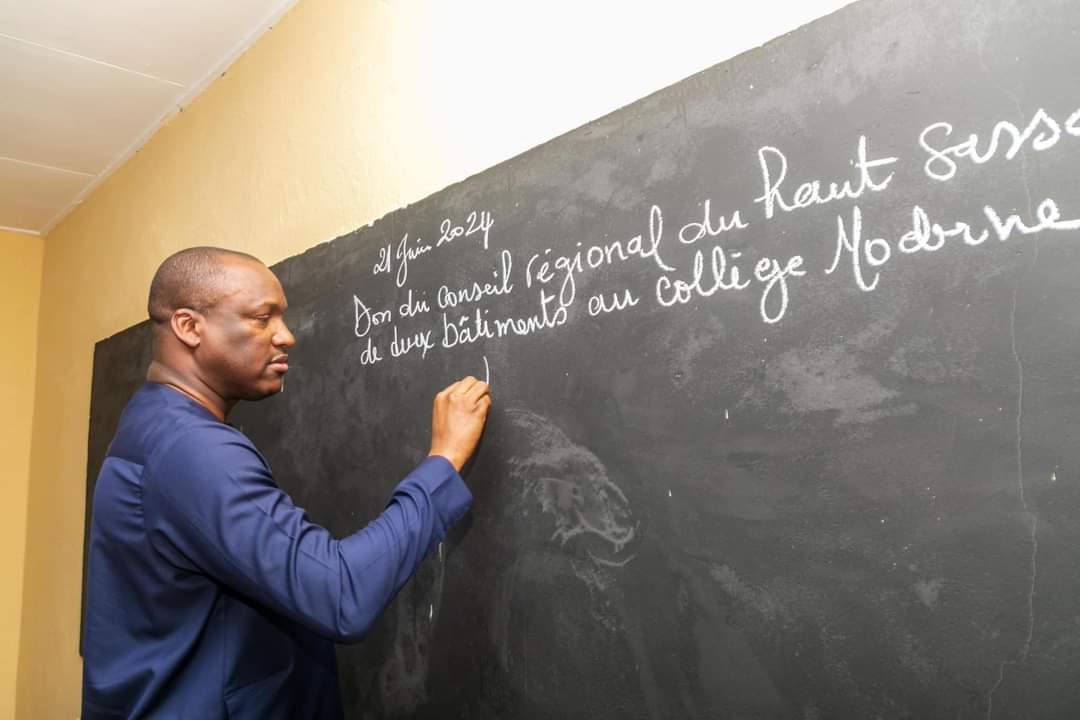 21 Juin 2024
Don du conseil régional du haut Sass
de deux bâtiments au collège Moderne